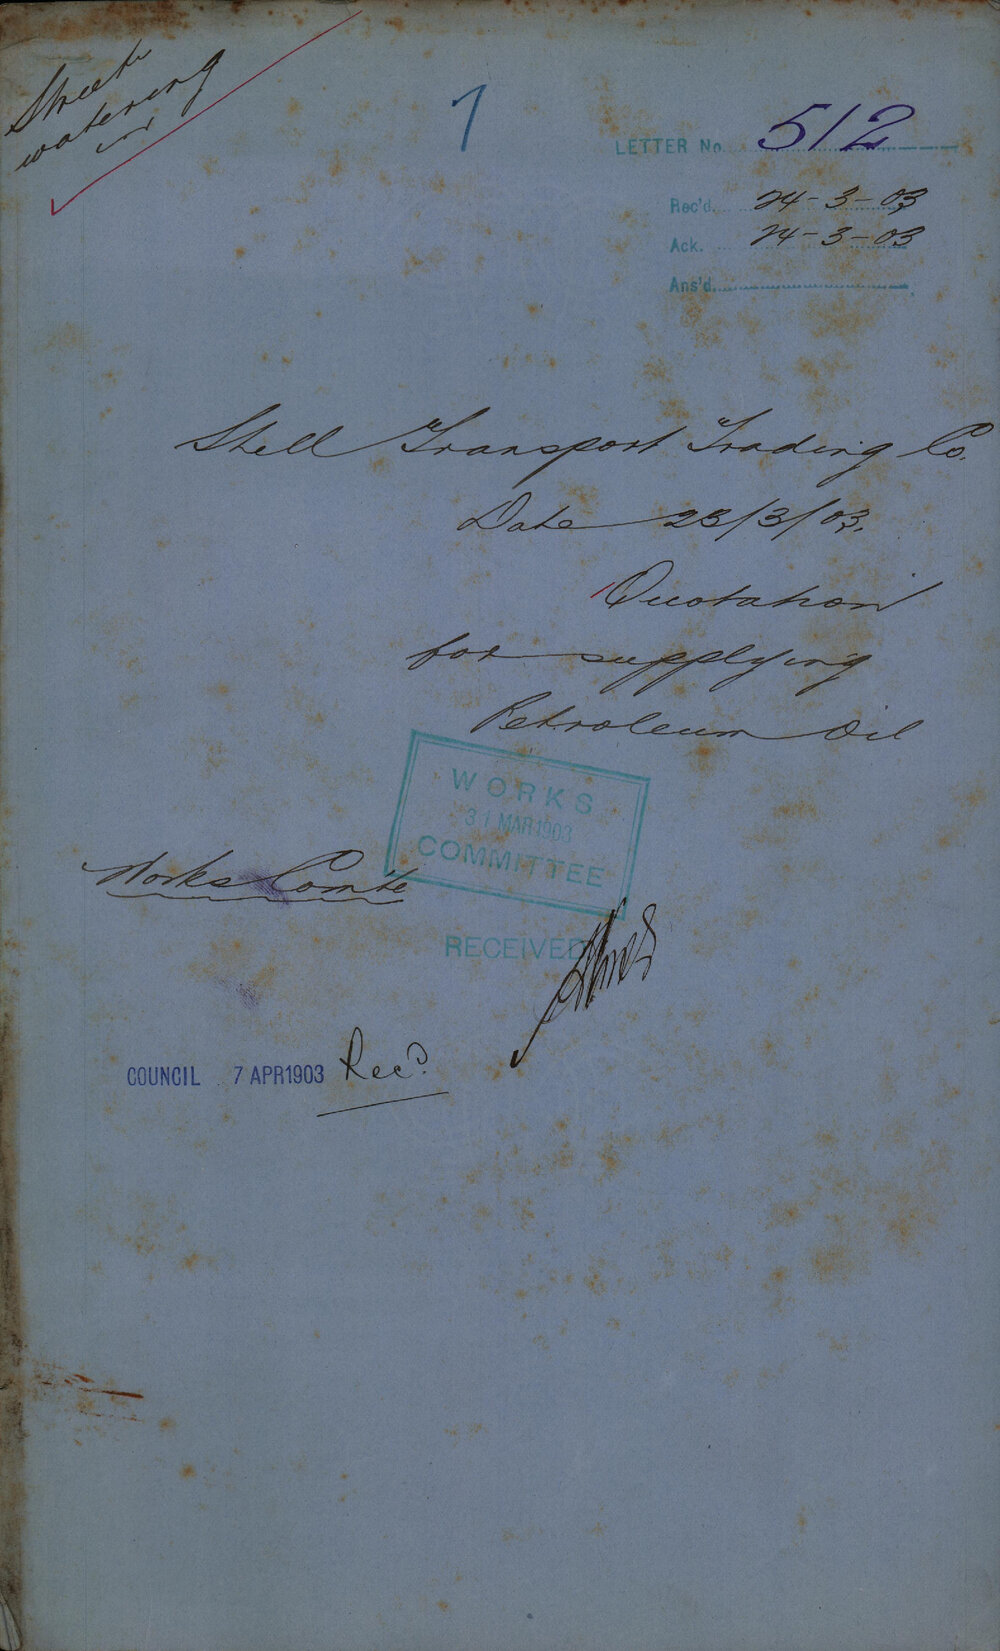 Street
watering
7
LETTER No. 512
Rec'd. 24-3-03
Ack. 24-3-03
Ans'd.
Shell Transport Trading Co.
Date 23/3/03.
Quotation
for supplying
Petroleum Oil
WORKS
31 MAR 1903
COMMITTEE
Works Comte
RECEIVED
COUNCIL 7 APR 1903 Recd.